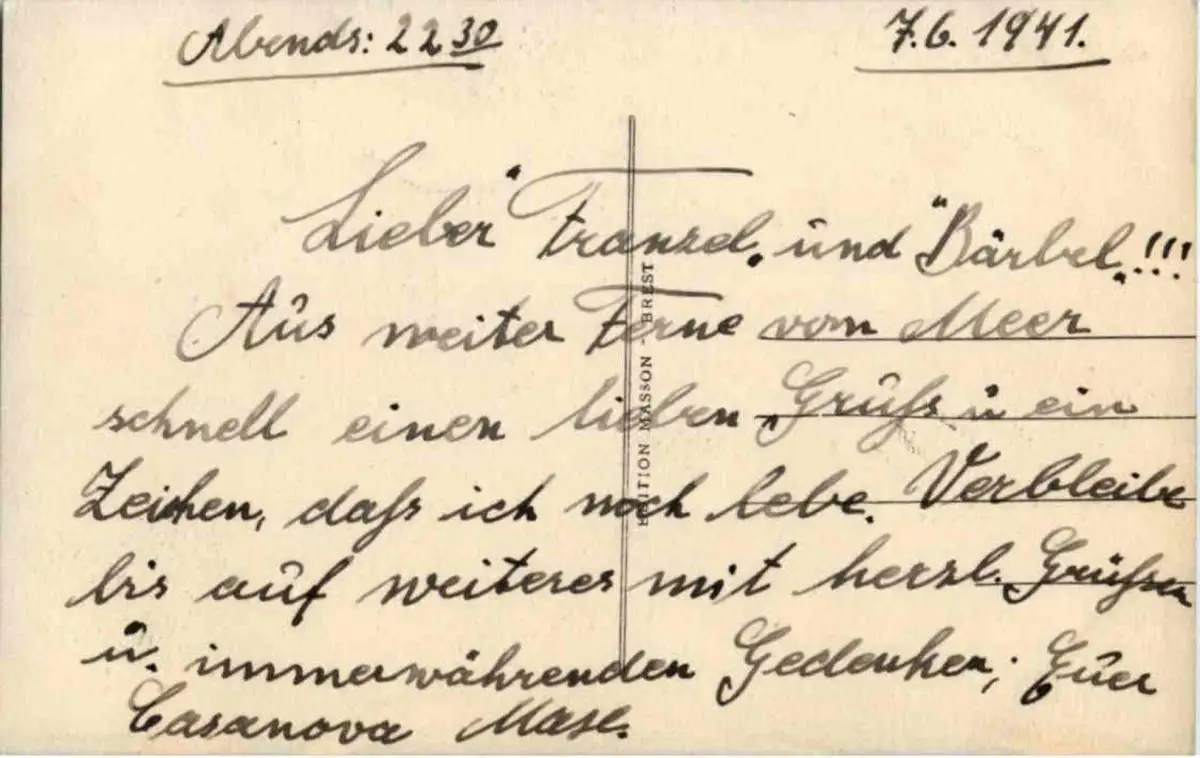 Abends: 22 30
7.6.1941.
Lieber "Franzel" und "Bärbel"!!!
Aus weiter Ferne vom Meer
schnell einen lieben Gruß u ein
Zeichen, daß ich noch lebe. Verbleibe
bis auf weiteres mit herzl. Grüßen
u. immerwährenden Gedenken; Euer
Casanova Maxl.
EDITION MASSON - BREST